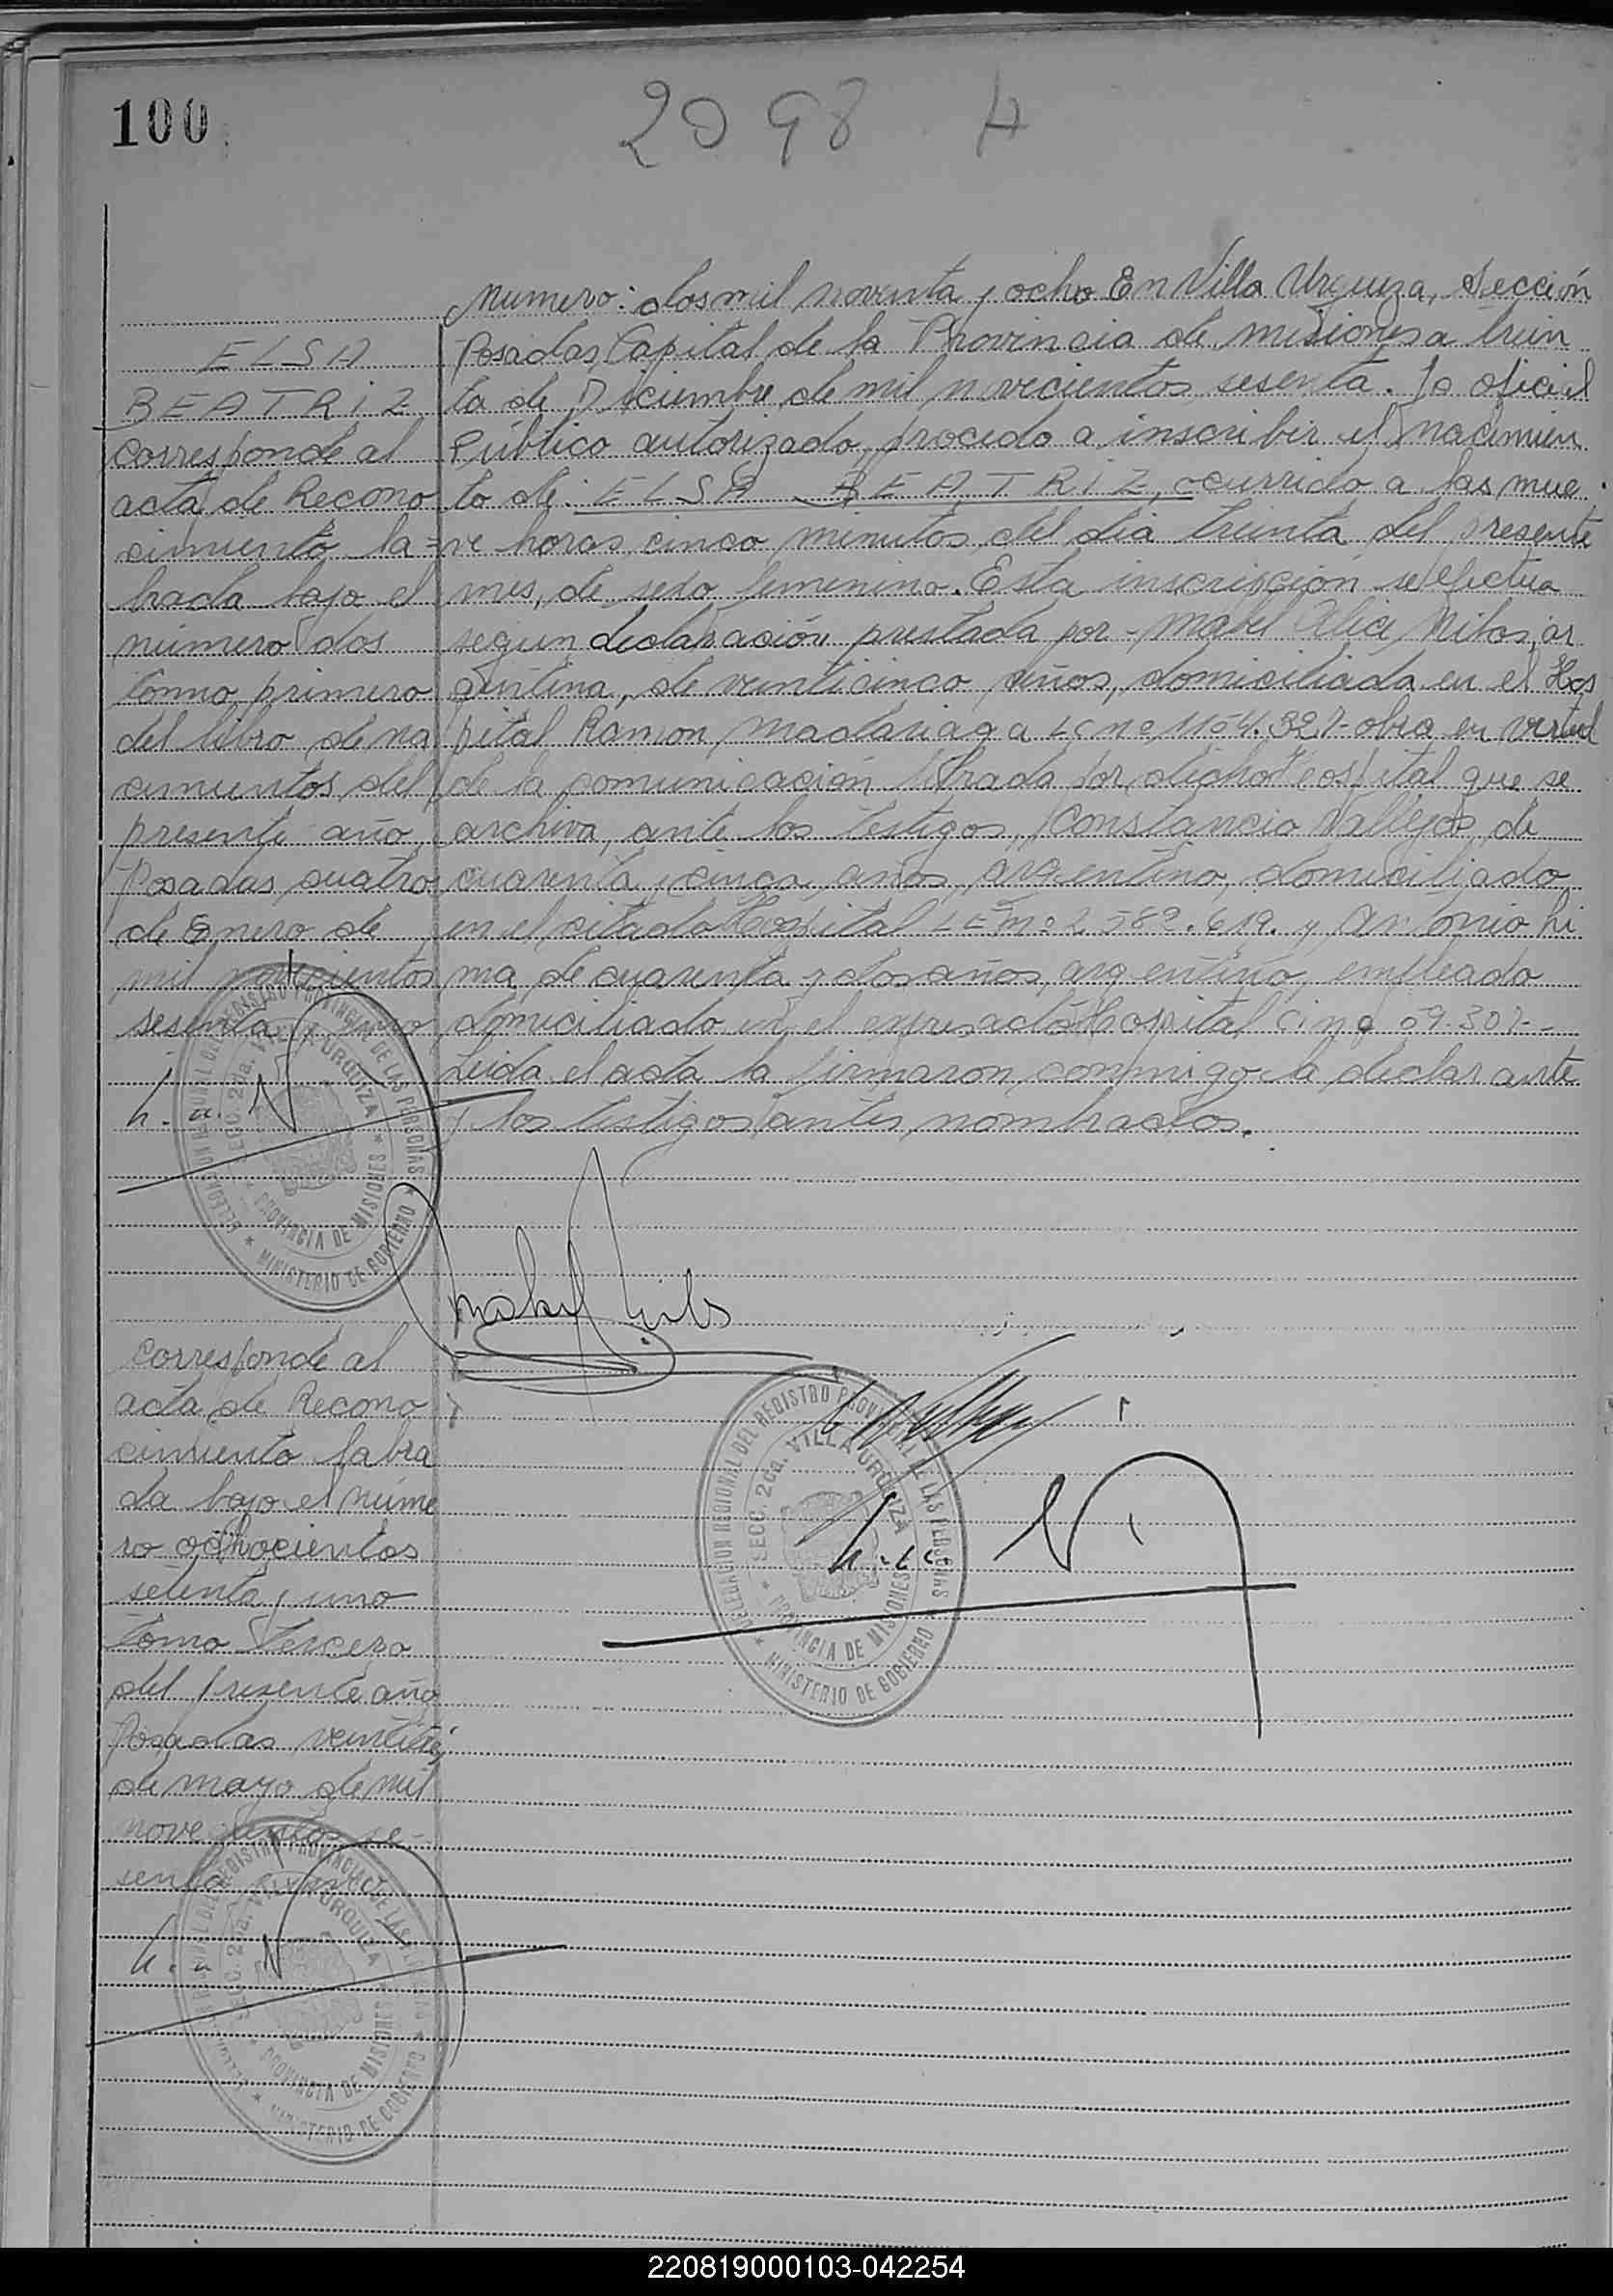 100
2098 A
Numero: dos mil noventa y ocho En Villa Urquiza, Sección
Posadas, Capital de la Provincia de Misiones a trein
ta de Diciembre de mil novecientos sesenta. Yo oficial
Público autorizado, procedo a inscribir el nacimien
to de: ELSA BEATRIZ, ocurrido a las nue
ve horas cinco minutos del día treinta del presente
mes, de sexo femenino. Esta inscripción se efectua
segun declaración prestada por - Mabel Alice ar
gentina, de veinticinco años, domiciliada en el Hos
pital Ramon Madariaga LC nº obra en virtud
de la comunicación librada por dicho Hospital que se
archiva, ante los testigos, Constancio Vallejos, de
cuarenta y cinco años, argentino, domiciliado
en el citado Hospital LE nº 2.582.619. y Antonio Li
ma, de cuarenta y dos años, argentino, empleado
domiciliado en el expresado Hospital Ci nº 59.307.-
Leida el acta la firmaron conmigo la declarante
y los testigos antes nombrados.
ELSA
BEATRIZ
Corresponde al
acta de Recono
cimiento la=
brada bajo el
número dos
tomo primero
del libro de na
cimientos del
presente año
Posadas, cuatro
de Enero de
mil novecientos
sesenta y uno
DELEGACION REGIONAL DEL REGISTRO PROVINCIAL DE LAS PERSONAS
SECC. 2da. VILLA URQUIZA
PROVINCIA DE MISIONES
MINISTERIO DE GOBIERNO
Mabel
DELEGACION REGIONAL DEL REGISTRO PROVINCIAL DE LAS PERSONAS
SECC. 2da. VILLA URQUIZA
PROVINCIA DE MISIONES
MINISTERIO DE GOBIERNO
Corresponde al
acta de Recono
cimiento labra
da bajo el núme
ro ochocientos
setenta y uno
Tomo Tercero
del presente año
Posadas veintitrés
de mayo de mil
novecientos se-
senta
DELEGACION REGIONAL DEL REGISTRO PROVINCIAL DE LAS PERSONAS
SECC. 2da. VILLA URQUIZA
PROVINCIA DE MISIONES
MINISTERIO DE GOBIERNO
220819000103-042254